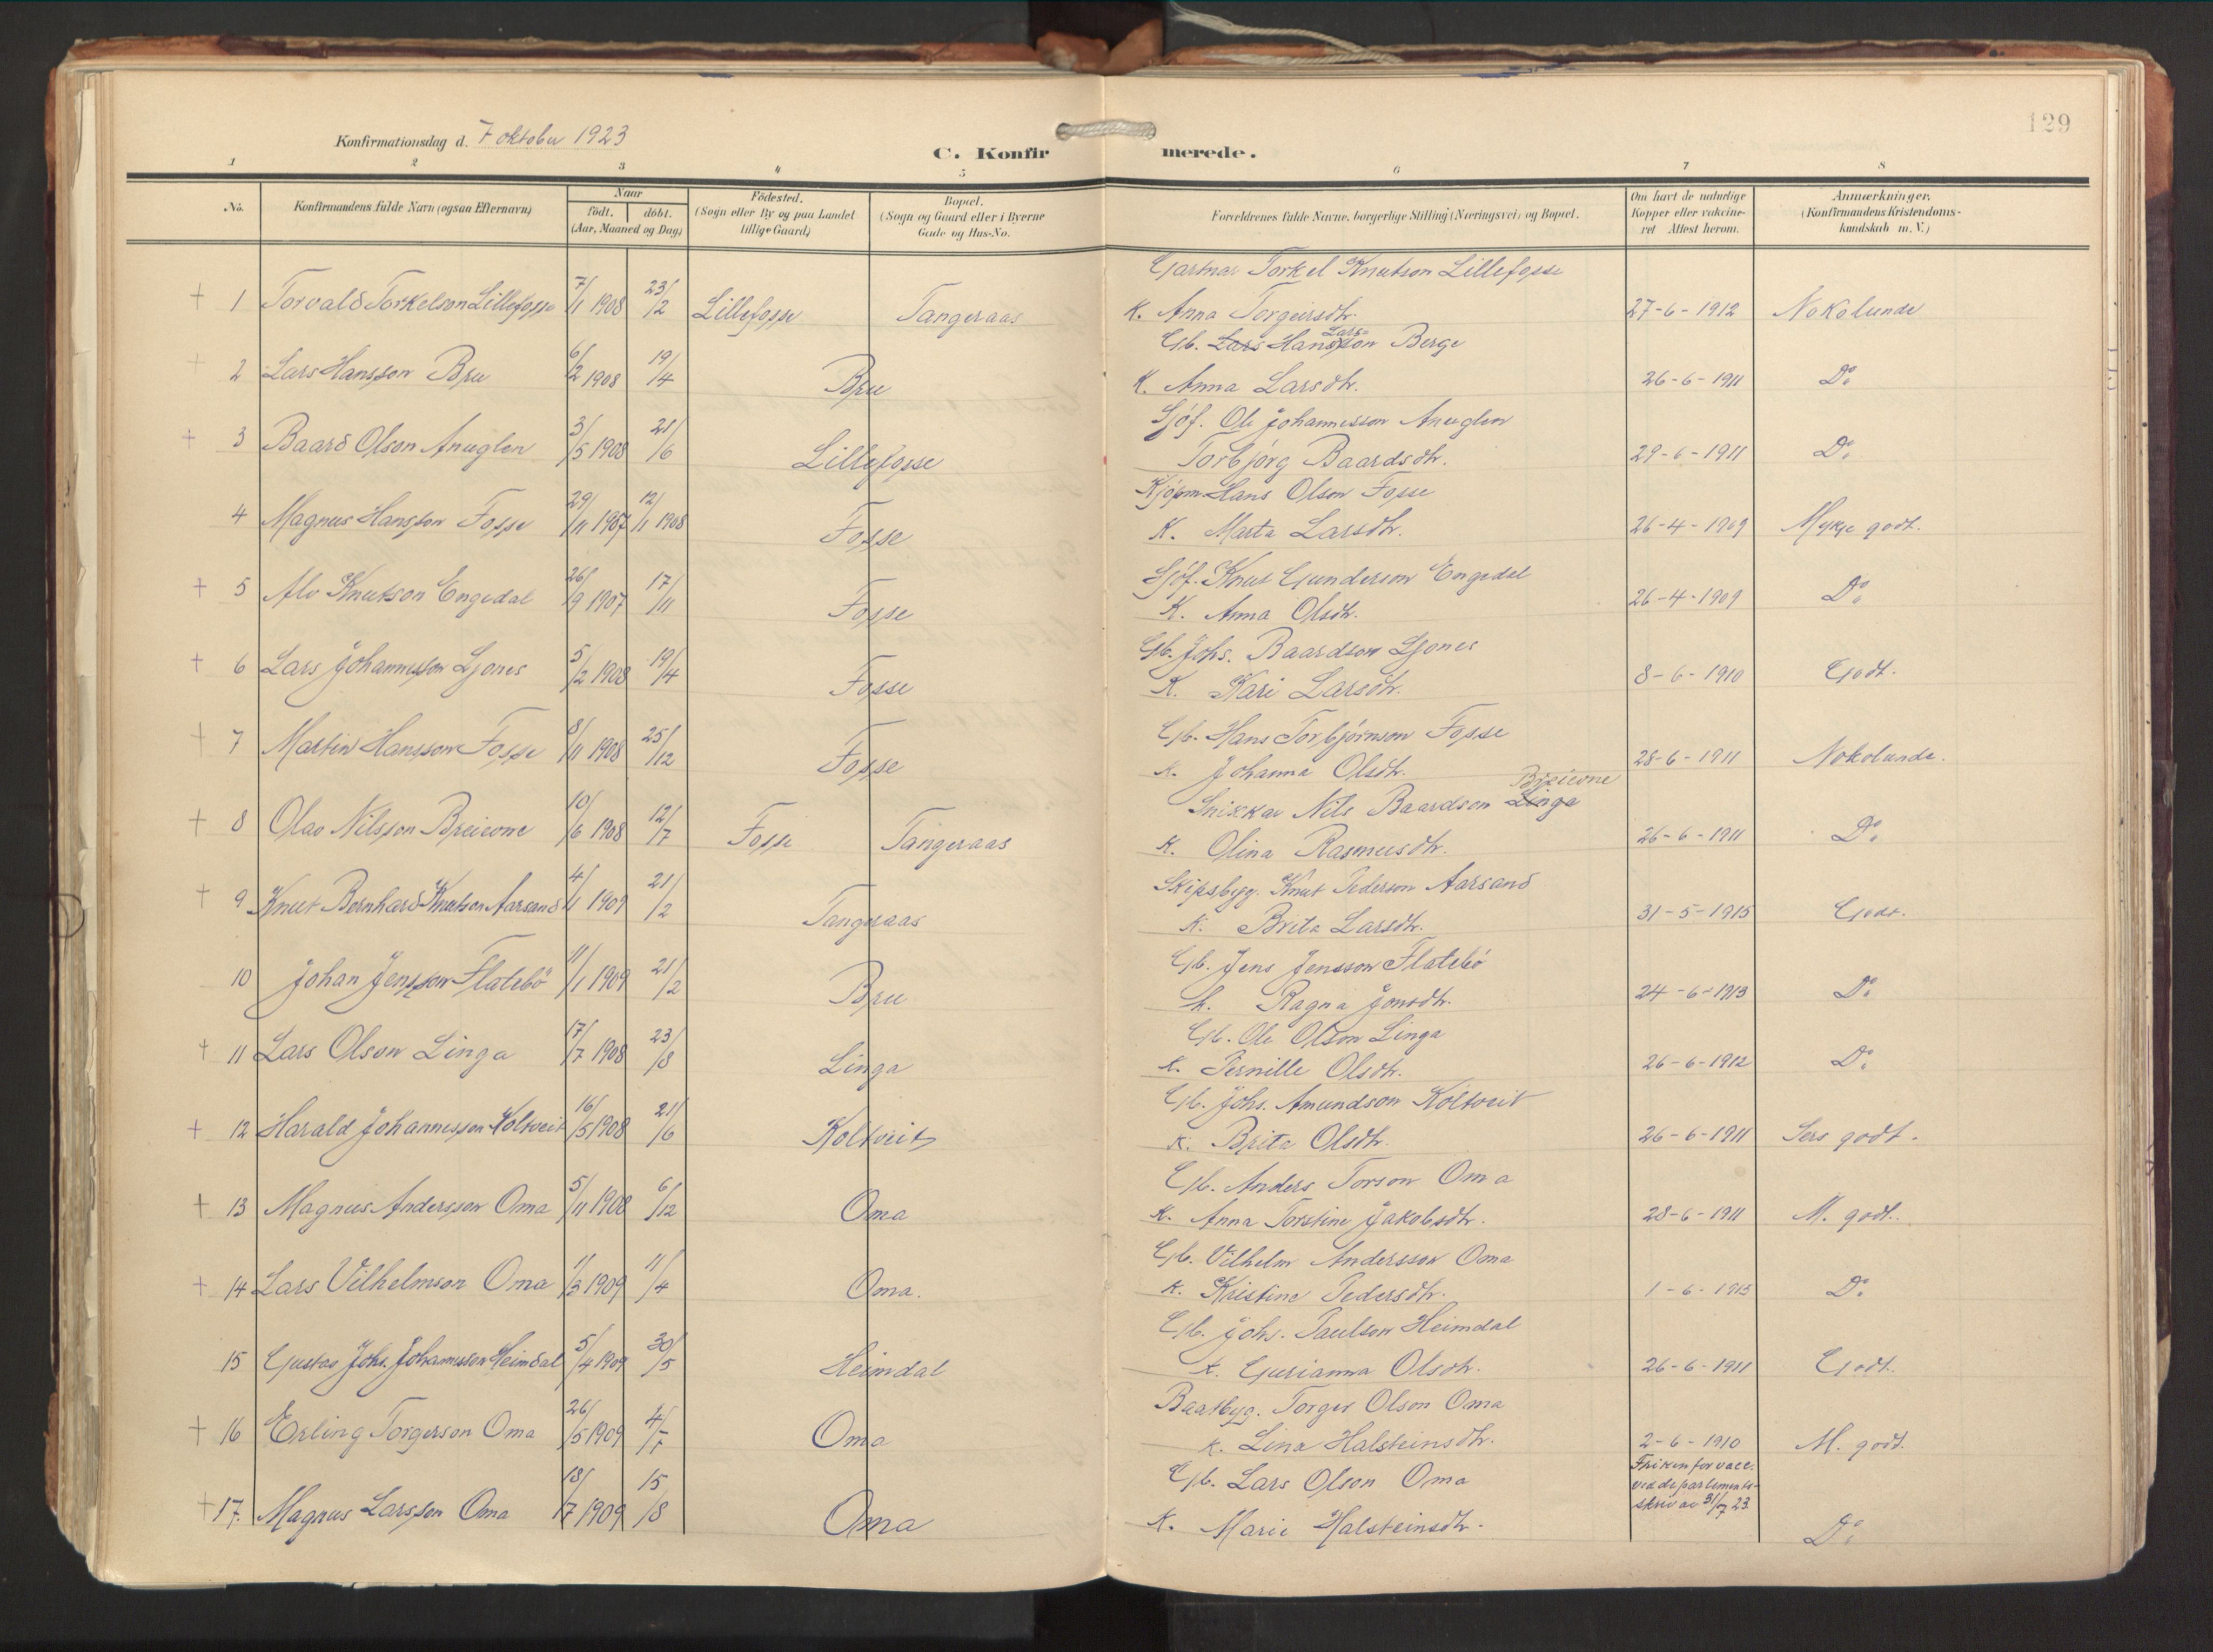 129
Konfirmationsdag d. 7 oktober 1923
C. Konfirmerede.
1 2 3 4 5 6 7 8
No. Konfirmandens fulde Navn (ogsaa Efternavn) Naar födt. döbt. (Aar, Maaned og Dag) Födested. (Sogn eller By og paa Landet tillige Gaard) Bopæl. (Sogn og Gaard eller i Byerne Gade og Hus-No. Forældrenes fulde Navne, borgerlige Stilling (Næringsvei) og Bopæl. Om havt de naturlige Kopper eller vakcineret Attest herom. Anmærkninger. (Konfirmandens Kristendomskundskab m. V.)
Gartnar Torkel Knutson Lillefosse
+ 1 Torvald Torkelson Lillefosse 7/1 1908 23/2 Lillefosse Tangeraas K. Anna Torgeirsdtr. 27-6-1912 Nokolunde
Gb. Lars Hansson Lars- Berge
+ 2 Lars Hansson Bru 6/2 1908 19/4 Bru K. Anna Larsdtr. 26-6-1911 Do
Sjöf. Ole Johannesson Anuglen
+ 3 Baard Olson Anuglen 3/5 1908 21/6 Lillefosse Torbjörg Baardsdtr. 29-6-1911 Do
Kjöpm. Hans Olson Fosse
4 Magnus Hansson Fosse 29/11 1907 12/1 1908 Fosse K. Marta Larsdtr. 26-4-1909 Mykje godt.
Sjöf. Knut Gunderson Engedal
+ 5 Alv Knutson Engedal 26/9 1907 17/11 Fosse K. Anna Olsdtr. 26-4-1909 Do
Gb. Johs. Baardson Ljones
+ 6 Lars Johannesson Ljones 5/2 1908 19/4 Fosse K. Kari Larsdtr. 8-6-1910 Godt.
Gb. Hans Torbjörnson Fosse
+ 7 Martin Hansson Fosse 8/11 1908 25/12 Fosse K. Johanna Olsdtr. 28-6-1911 Nokolunde.
Snikkar Nils Baardson Linga Breivone
+ 8 Olav Nilsson Breivone 10/6 1908 12/7 Fosse Tangeraas K. Olina Rasmusdtr. 26-6-1911 Do
Skipsbyg. Knut Pederson Aarsand
+ 9 Knut Bernhard Knutson Aarsand 4/1 1909 21/2 Tangeraas K. Brita Larsdtr. 31-5-1915 Godt.
Gb. Jens Jensson Flatebö
10 Johan Jensson Flatebö 11/1 1909 21/2 Bru K. Ragna Jonsdtr. 24-6-1913 Do
Gb. Ole Olson Linga
+ 11 Lars Olson Linga 17/7 1908 23/8 Linga K. Pernille Olsdtr. 26-6-1912 Do
Gb. Johs. Amundson Koltveit
+ 12 Harald Johannesson Koltveit 16/5 1908 21/6 Koltveit K. Brita Olsdtr. 26-6-1911 Sers godt.
Gb. Anders Torson Oma
+ 13 Magnus Andersson Oma 5/11 1908 6/12 Oma K. Anna Torstine Jakobsdtr. 28-6-1911 M. godt.
Gb. Vilhelm Andersson Oma
+ 14 Lars Vilhelmson Oma 1/3 1909 11/4 Oma. K. Kristine Pedersdtr. 1-6-1915 Do
Gb. Johs. Paulson Heimdal
15 Gustav Johs. Johannesson Heimdal 5/4 1909 30/5 Heimdal K. Gurianna Olsdtr. 26-6-1911 Godt.
Baatbyg. Torger Olson Oma
+ 16 Erling Torgerson Oma 26/5 1909 4/7 Oma K. Lina Halsteinsdtr. 2-6-1910 M. godt.
Gb. Lars Olson Oma Friken for vacc. ved departements- skriv av 31/7 23.
+ 17. Magnus Larsson Oma 18/7 1909 15/8 Oma K. Marie Halsteinsdtr. Do